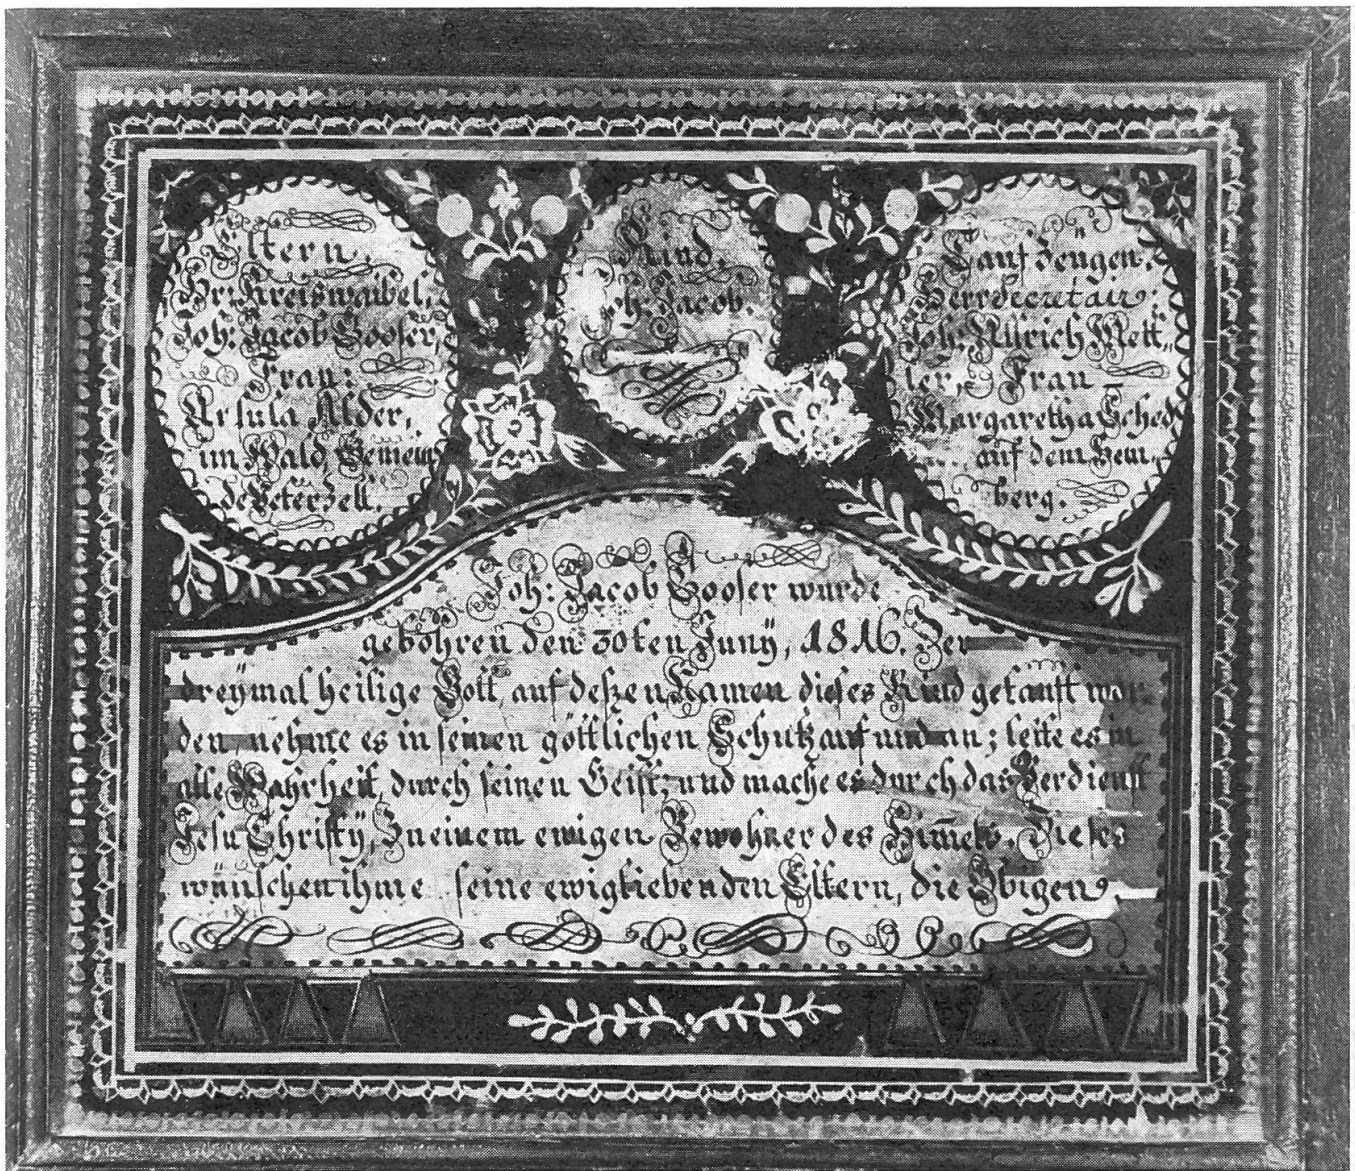 Eltern.
Hr: Kreiswaibel,
Joh: Jacob Gooser,
Frau:
Ursula Alder,
im Wald, Gemein
de Peterzell.
Kind.
Joh: Jacob.
Taufzeugen.
Herr Secretair:
Joh: Ullrich Mett„
ler, Frau
Margaretha Sched
auf dem Hem„
berg.
Joh: Jacob Gooser wurde
gebohren den 30ten Juny, 1816. Der
dreymal heilige Gott auf deßen Namen dieses Kind getauft wor„
den, nehme es in seinen göttlichen Schutz auf und an; leite es in
alle Wahrheit, durch seinen Geist; und mache es durch das Verdienst
Jesu Christy, Zu einem ewigen Bewohner des Him̄els. Dieses
wünschen ihme seine ewigliebenden Eltern, die Obigen